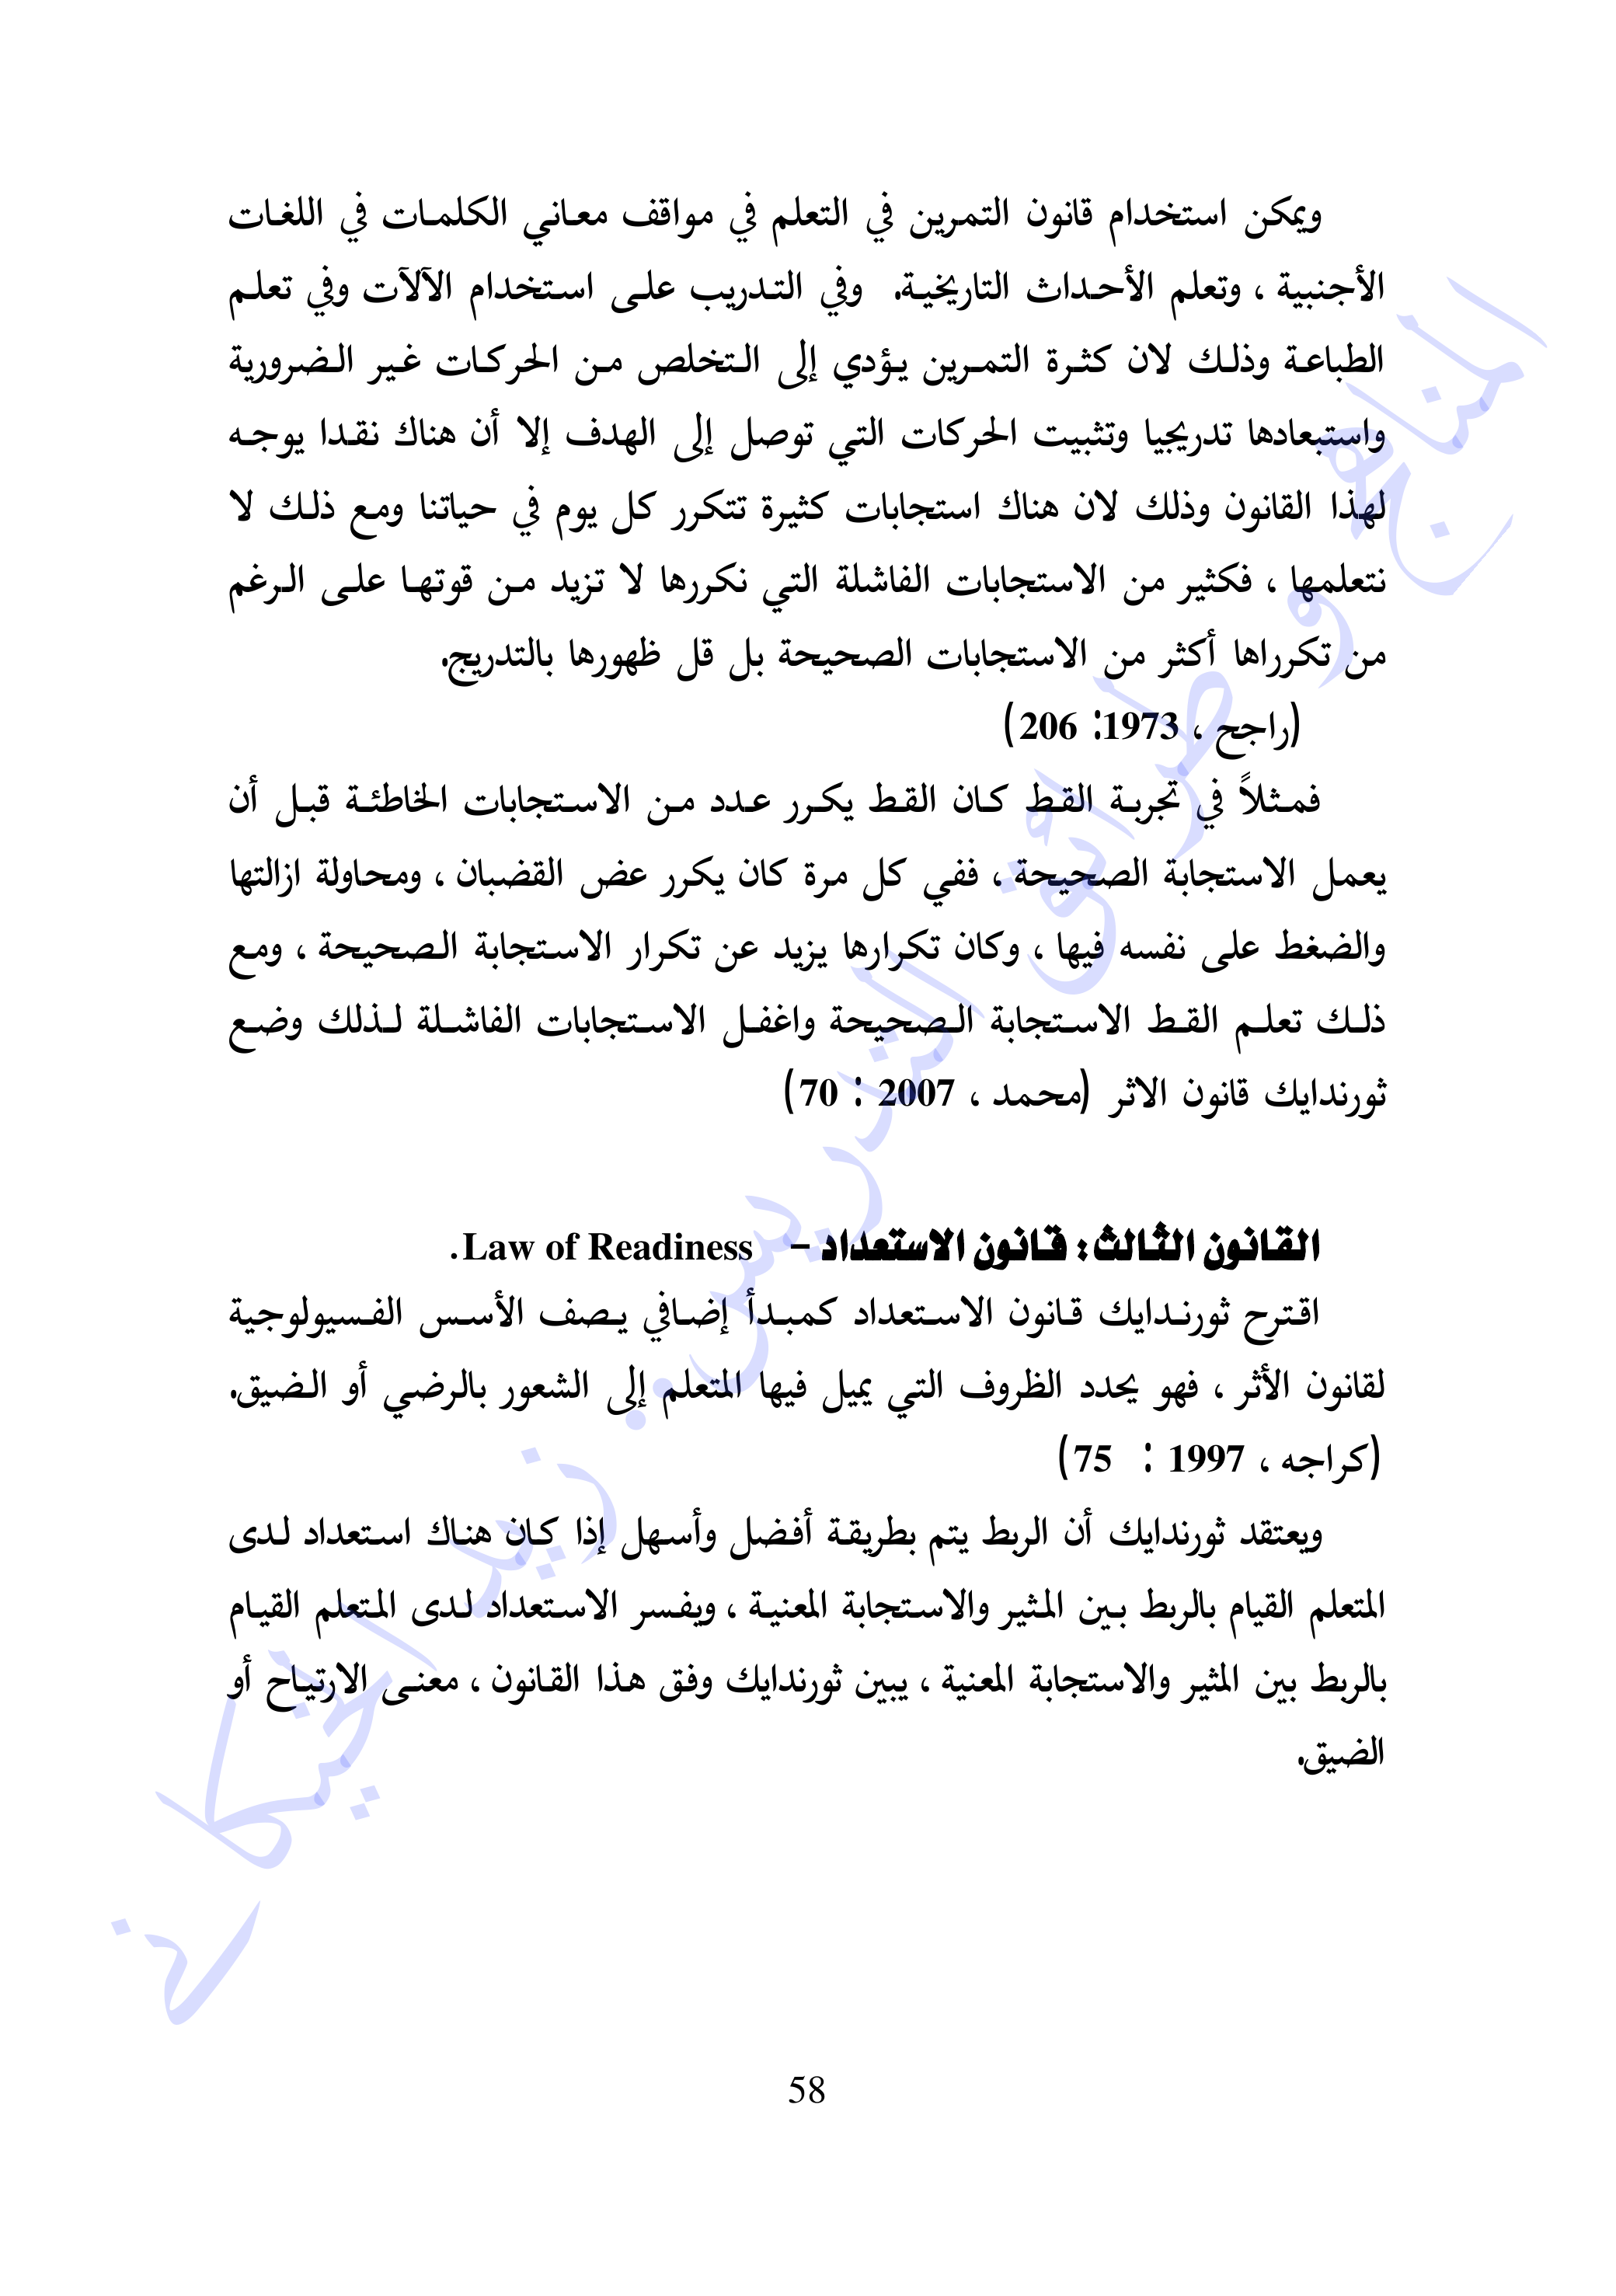 ويمكن استخدام قانون التمرين في التعلم في مواقف معاني الكلمات في اللغات
الأجنبية ، وتعلم الأحداث التاريخية. وفي التدريب على استخدام الآلآت وفي تعلم
الطباعة وذلك لان كثرة التمرين يؤدي إلى التخلص من الحركات غير الضرورية
واستبعادها تدريجيا وتثبيت الحركات التي توصل إلى الهدف إلا أن هناك نقدا يوجه
لهذا القانون وذلك لان هناك استجابات كثيرة تتكرر كل يوم في حياتنا ومع ذلك لا
نتعلمها ، فكثير من الاستجابات الفاشلة التي نكررها لا تزيد من قوتها على الرغم
من تكرراها أكثر من الاستجابات الصحيحة بل قل ظهورها بالتدريج.
(راجح ، 1973: 206)
فمثلاً في تجربة القط كان القط يكرر عدد من الاستجابات الخاطئة قبل أن
يعمل الاستجابة الصحيحة ، ففي كل مرة كان يكرر عض القضبان ، ومحاولة ازالتها
والضغط على نفسه فيها ، وكان تكرارها يزيد عن تكرار الاستجابة الصحيحة ، ومع
ذلك تعلم القط الاستجابة الصحيحة واغفل الاستجابات الفاشلة لذلك وضع
ثورندايك قانون الاثر (محمد ، 2007 : 70)
القانون الثالث: قانون الاستعداد – Law of Readiness.
اقترح ثورندايك قانون الاستعداد كمبدأ إضافي يصف الأسس الفسيولوجية
لقانون الأثر ، فهو يحدد الظروف التي يميل فيها المتعلم إلى الشعور بالرضي أو الضيق.
(كراجه ، 1997 : 75)
ويعتقد ثورندايك أن الربط يتم بطريقة أفضل وأسهل إذا كان هناك استعداد لدى
المتعلم القيام بالربط بين المثير والاستجابة المعنية ، ويفسر الاستعداد لدى المتعلم القيام
بالربط بين المثير والاستجابة المعنية ، يبين ثورندايك وفق هذا القانون ، معنى الارتياح أو
الضيق.
58
المناهج وطرائق التدريس.